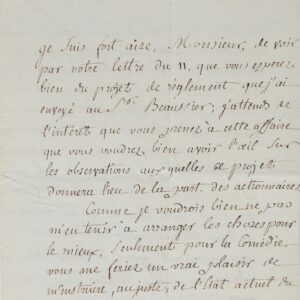 Je suis fort aise, Monsieur, de voir
par votre lettre du 11, que vous esperez
bien du projet de réglement que j'ai
envoyé au Sr. Beaussier; j'attends de
l'intérêt que vous prenez à cette affaire
que vous voudrez bien avoir l'œil sur
les observations auxquelles ce projet
donnera lieu de la part des actionnaires
Comme je voudrois bien ne pas
m'en tenir à arranger les choses pour
le mieux, seulement pour la Comédie,
vous me feriez un vrai plaisir de
m'instruire, au juste, de l'Etat actuel du